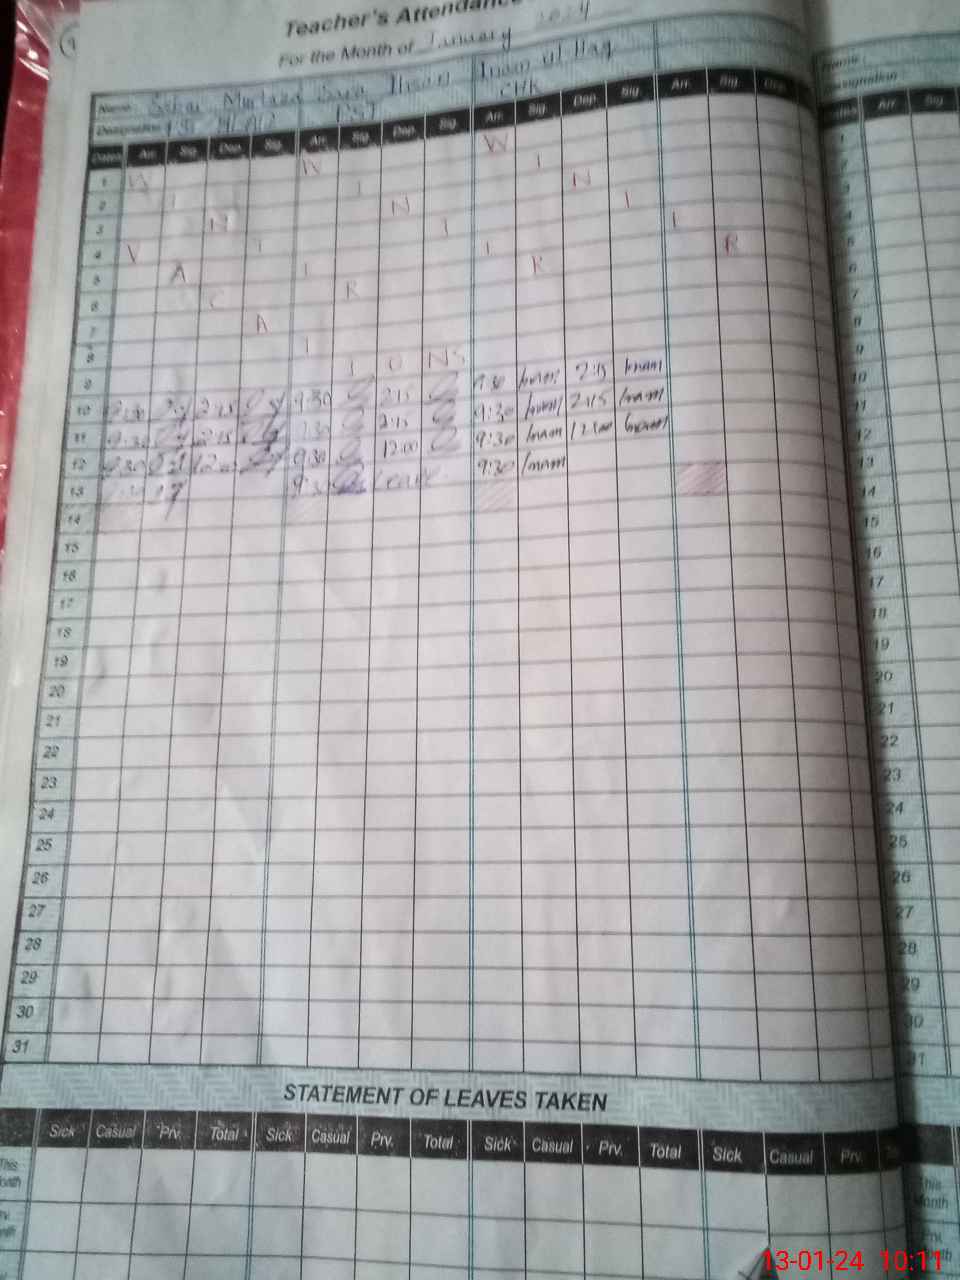 Teacher's Attendance
For the Month of January 2024
Name Murtaza Sara Ihsan Inam ul Haq
Designation PST PST CHK
Dates Arr. Sig. Dep. Sig. Arr. Sig. Dep. Sig. Arr. Sig. Dep. Sig. Arr. Sig. Dep.
1 W W W
2 I I I
3 N N N
4 V I I I I
5 A I I R R
6 C R
7 A
8 I
9 I O N S
10 9:30 2:15 9:30 2:15 9:30 Inam 2:15 Inam
11 9:30 2:15 9:30 2:15 9:30 Inam 2:15 Inam
12 9:30 12:00 9:30 12:00 9:30 Inam 12:00 Inam
13 9:30 9:30 Leave 9:30 Inam
14
15
16
17
18
19
20
21
22
23
24
25
26
27
28
29
30
31
STATEMENT OF LEAVES TAKEN
Sick Casual Prv. Total Sick Casual Prv. Total Sick Casual Prv. Total Sick Casual Prv.
This Month
Name
Designation
Dates Arr. Sig.
1
2
3
4
5
6
7
8
9
10
11
12
13
14
15
16
17
18
19
20
21
22
23
24
25
26
27
28
29
30
31
This Month
13-01-24 10:11